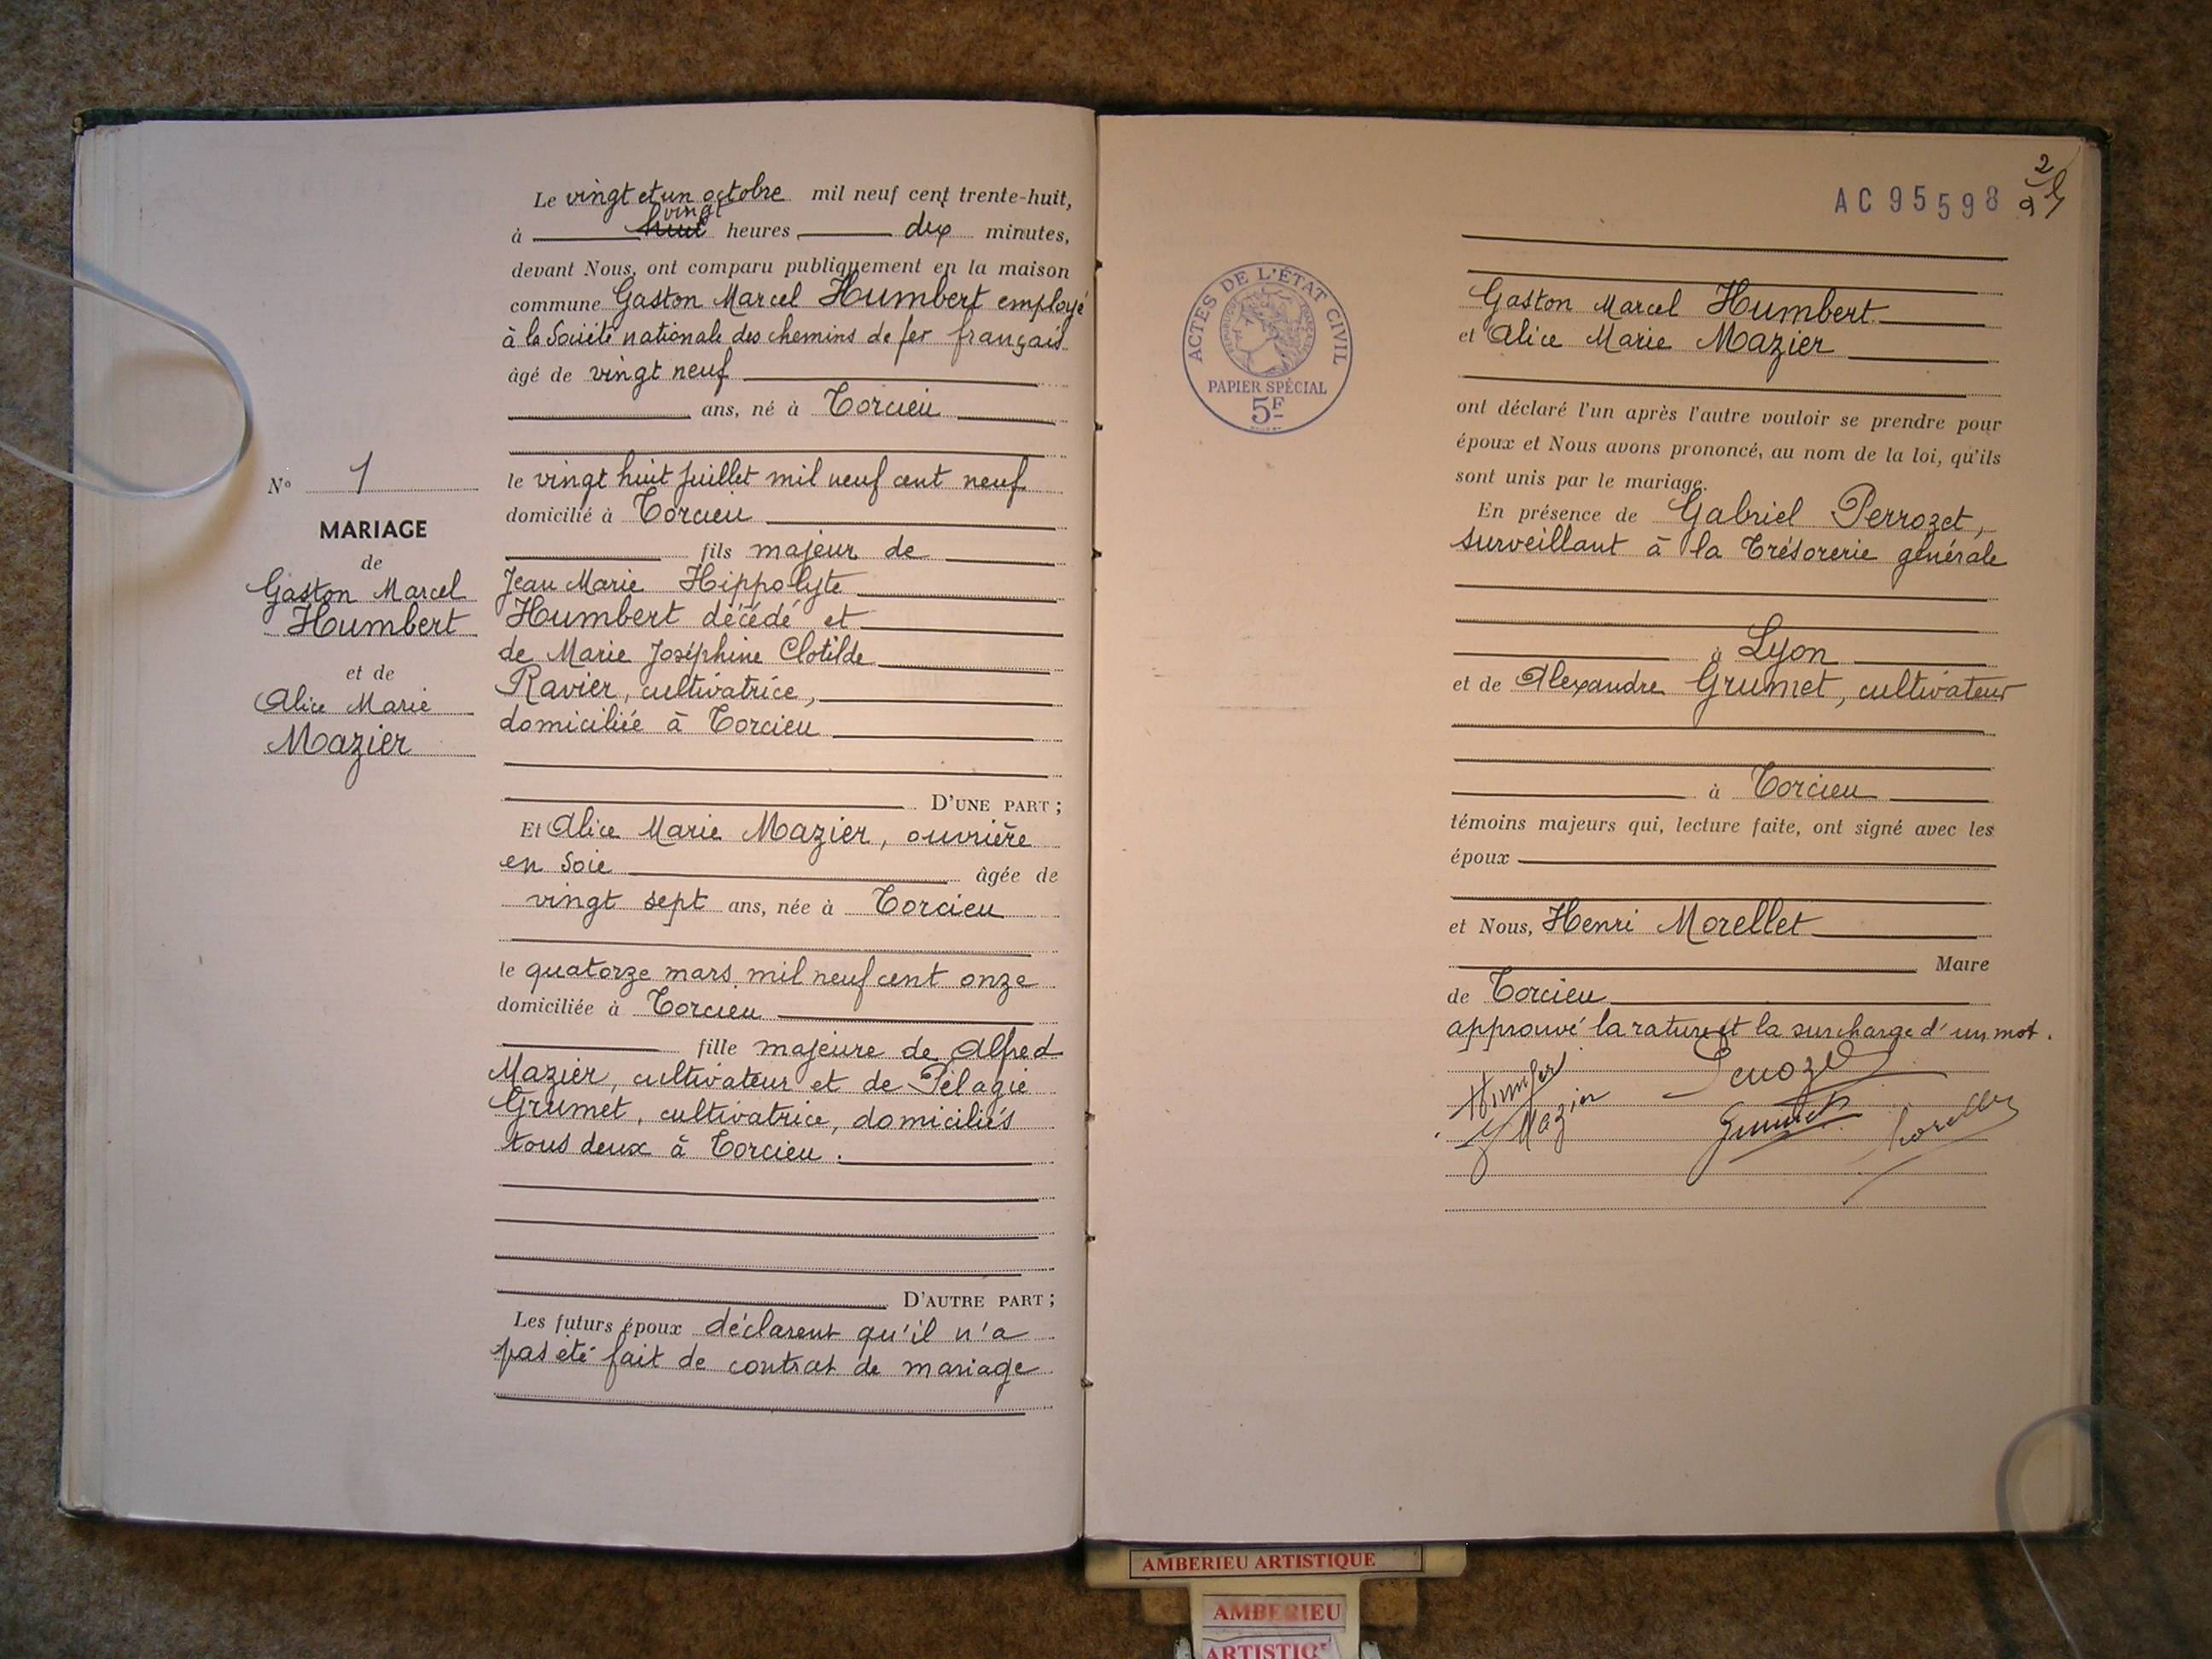 Le vingt et un octobre mil neuf cent trente-huit,
vingt
à huit heures dix minutes,
devant Nous, ont comparu publiquement en la maison
commune Gaston Marcel Humbert employé
à la Société nationale des chemins de fer français
âgé de vingt neuf
ans, né à Torcieu
le vingt huit juillet mil neuf cent neuf
domicilié à Torcieu
fils majeur de
Jean Marie Hippolyte
Humbert décédé et
de Marie Joséphine Clotilde
Ravier, cultivatrice,
domiciliée à Torcieu
D'UNE PART ;
Et Alice Marie Mazier, ouvrière
en soie âgée de
vingt sept ans, née à Torcieu
le quatorze mars mil neuf cent onze
domiciliée à Torcieu
fille majeure de Alfred
Mazier, cultivateur et de Pélagie
Grumet, cultivatrice, domiciliés
tous deux à Torcieu.
D'AUTRE PART ;
Les futurs époux déclarent qu'il n'a
pas été fait de contrat de mariage
N° 1
MARIAGE
de
Gaston Marcel
Humbert
et de
Alice Marie
Mazier
AC 95598
2
ACTES DE L'ÉTAT CIVIL
RÉPUBLIQUE FRANÇAISE
PAPIER SPÉCIAL
5F
Gaston Marcel Humbert
et Alice Marie Mazier
ont déclaré l'un après l'autre vouloir se prendre pour
époux et Nous avons prononcé, au nom de la loi, qu'ils
sont unis par le mariage.
En présence de Gabriel Perrozet,
surveillant à la Trésorerie générale
à Lyon
et de Alexandre Grumet, cultivateur
à Torcieu
témoins majeurs qui, lecture faite, ont signé avec les
époux
et Nous, Henri Morellet
Maire
de Torcieu
approuvé la rature et la surcharge d'un mot.
Mazier
Grumet
AMBERIEU ARTISTIQUE
AMBERIEU
ARTISTIQ